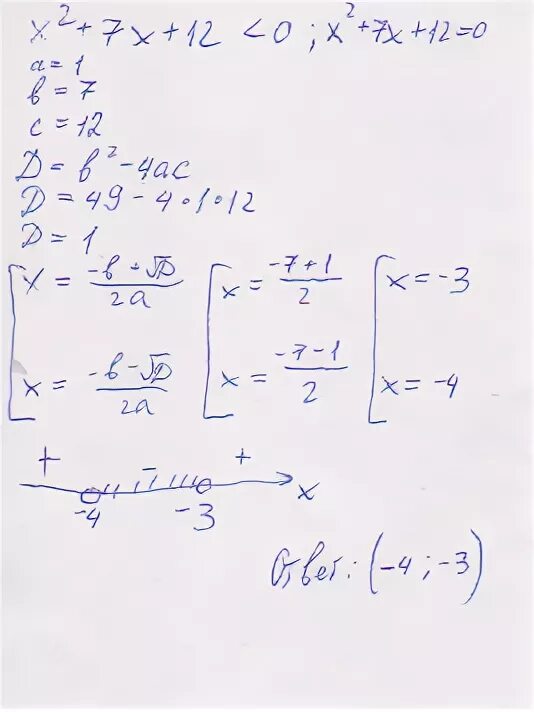 x² + 7x + 12 < 0 ; x² + 7x + 12 = 0
a = 1
b = 7
c = 12
D = b² - 4ac
D = 49 - 4 · 1 · 12
D = 1
[ x = (-b + √D)/2a [ x = (-7 + 1)/2 [ x = -3
x = (-b - √D)/2a x = (-7 - 1)/2 x = -4
+ - +
-4 -3 x
Ответ: (-4 ; -3)